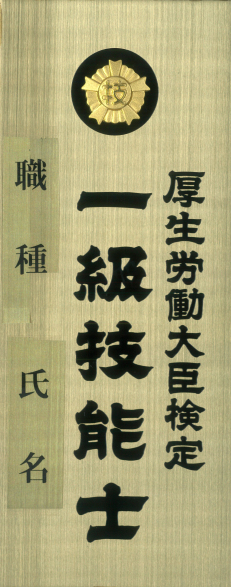 技
厚生労働大臣検定
一級技能士
職種
氏名